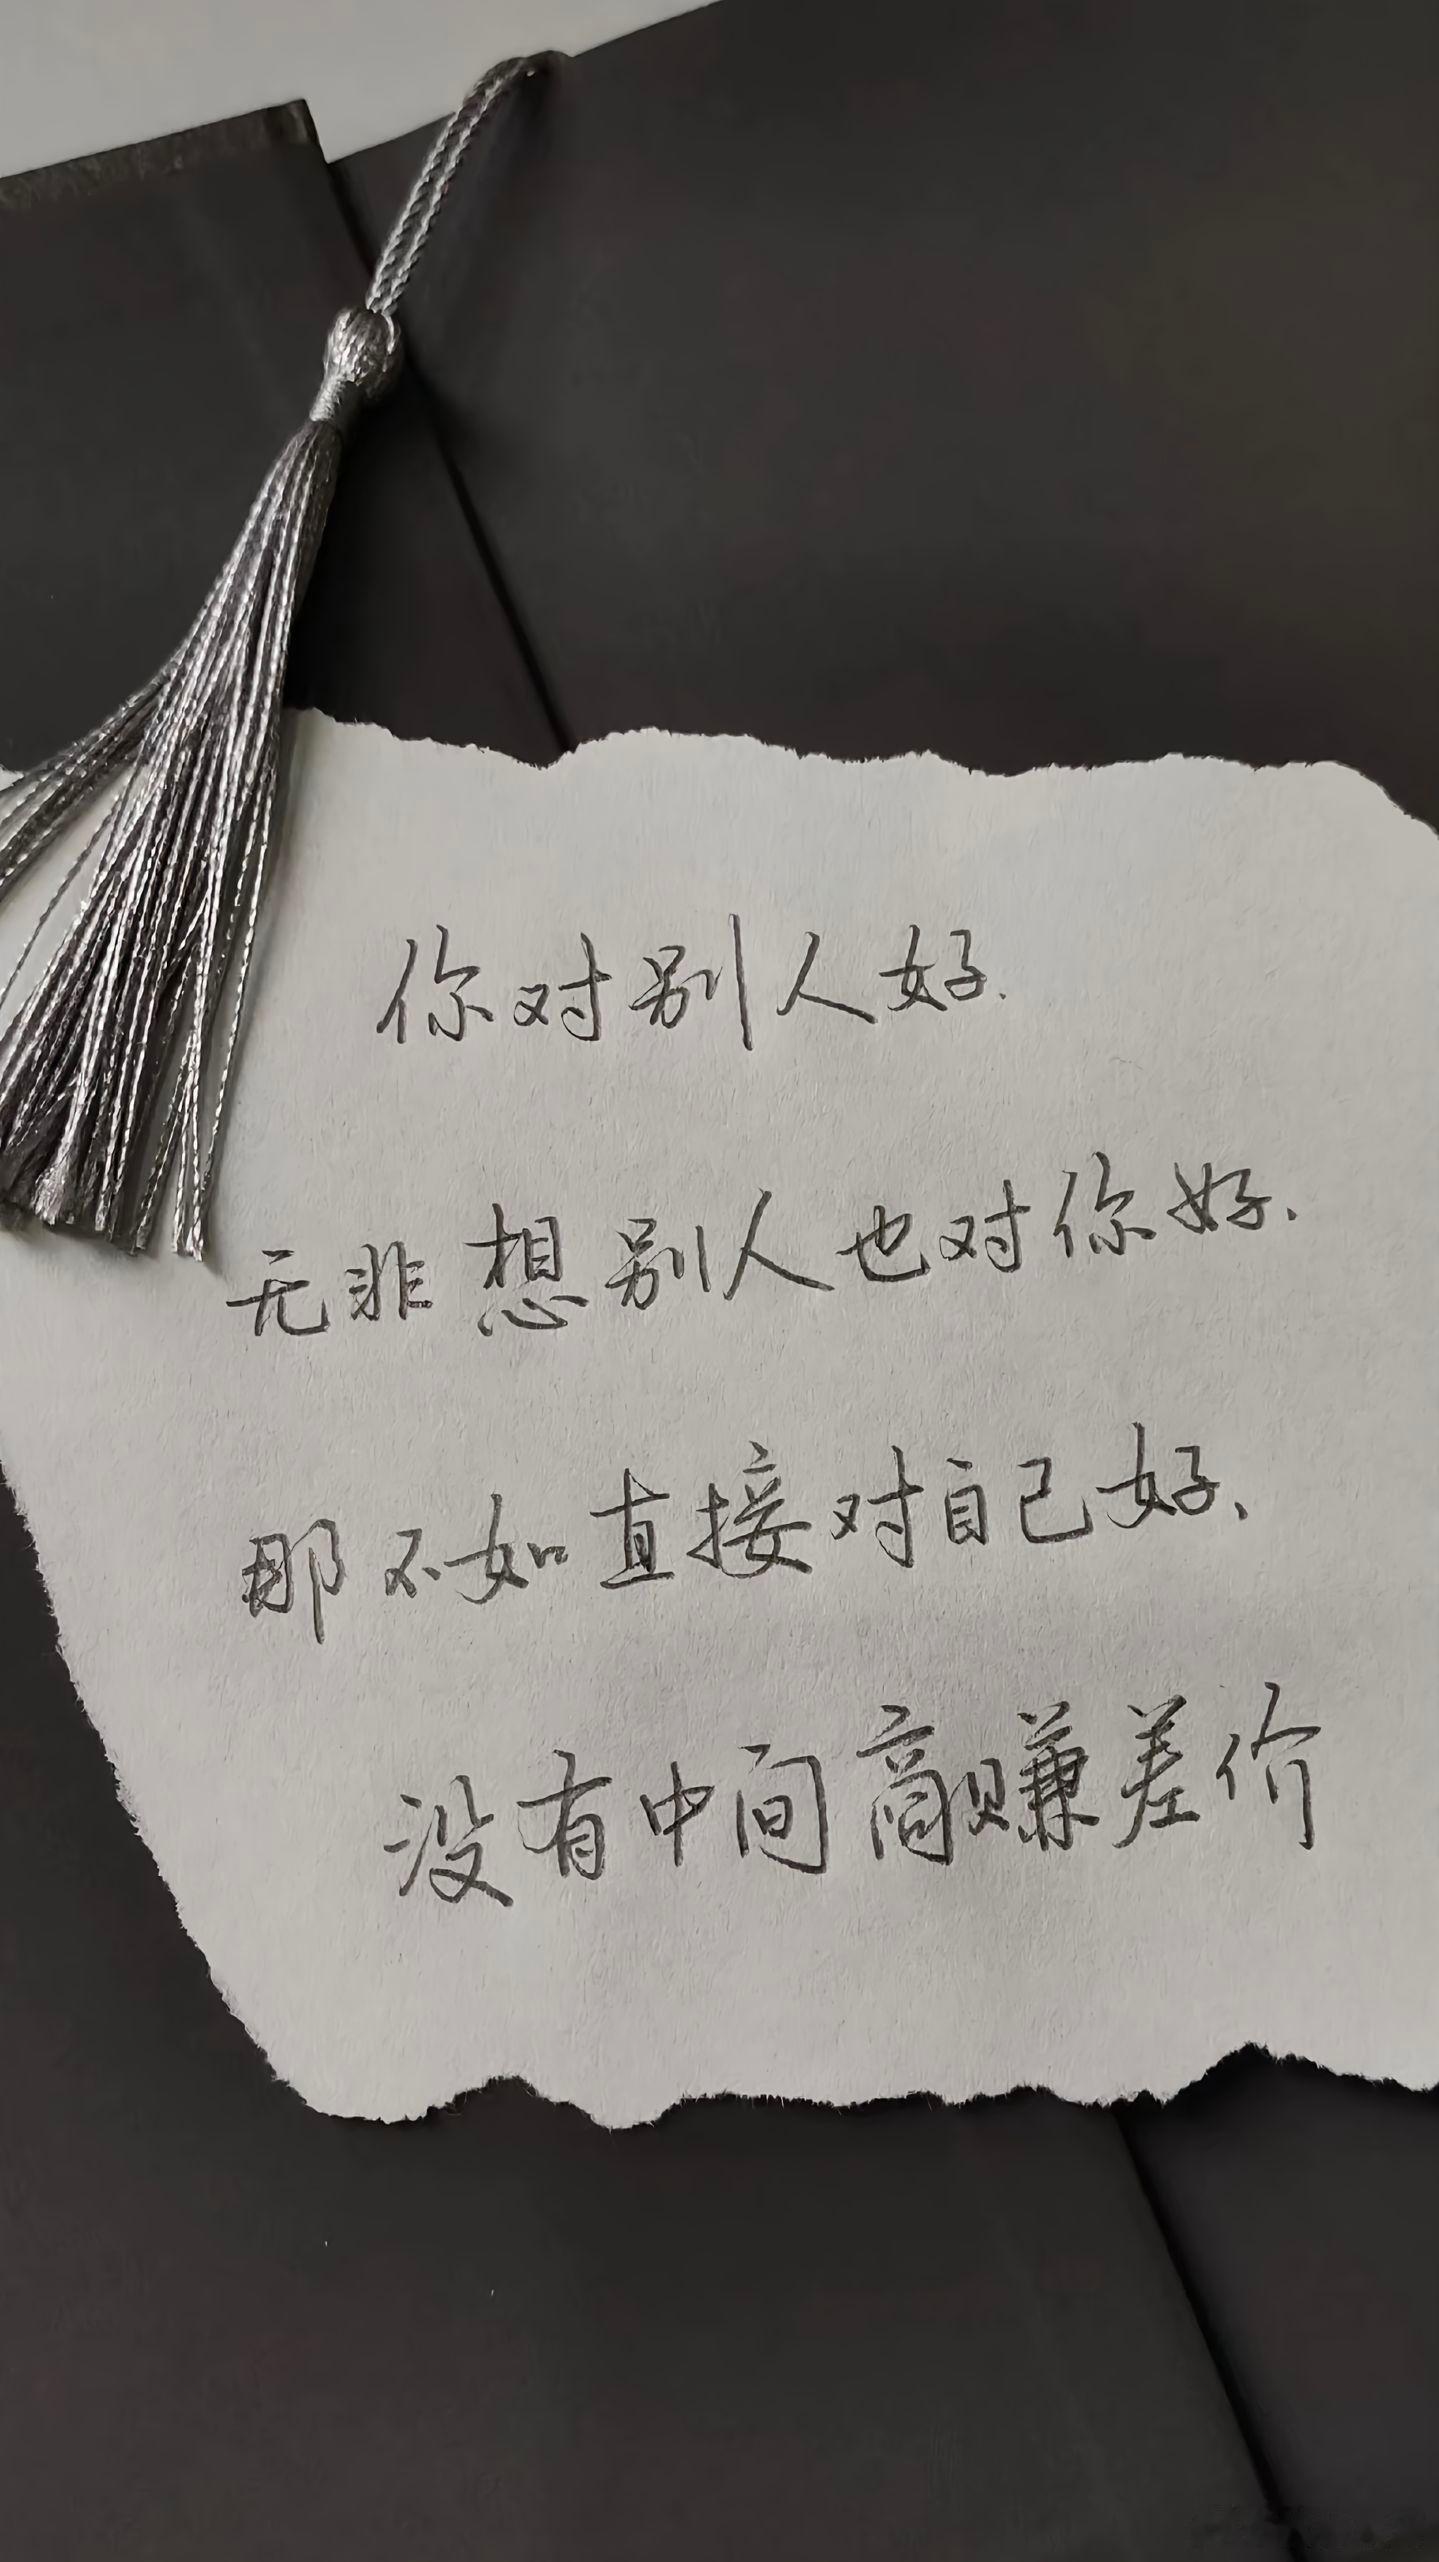 你对别人好.
无非想别人也对你好.
那不如直接对自己好、
没有中间商赚差价